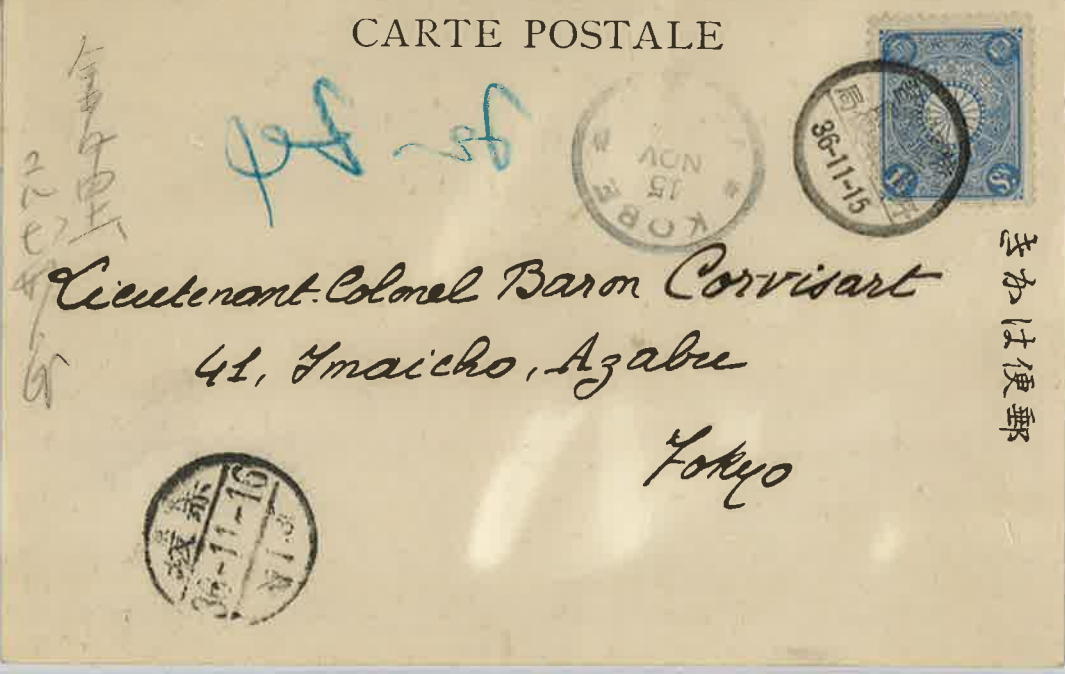 CARTE POSTALE
KOBE
15
NOV
局
36-11-15
きかは便郵
Lieutenant-Colonel Baron Corvisart
41, Imaicho, Azabu
Tokyo
赤坂
36-11-16